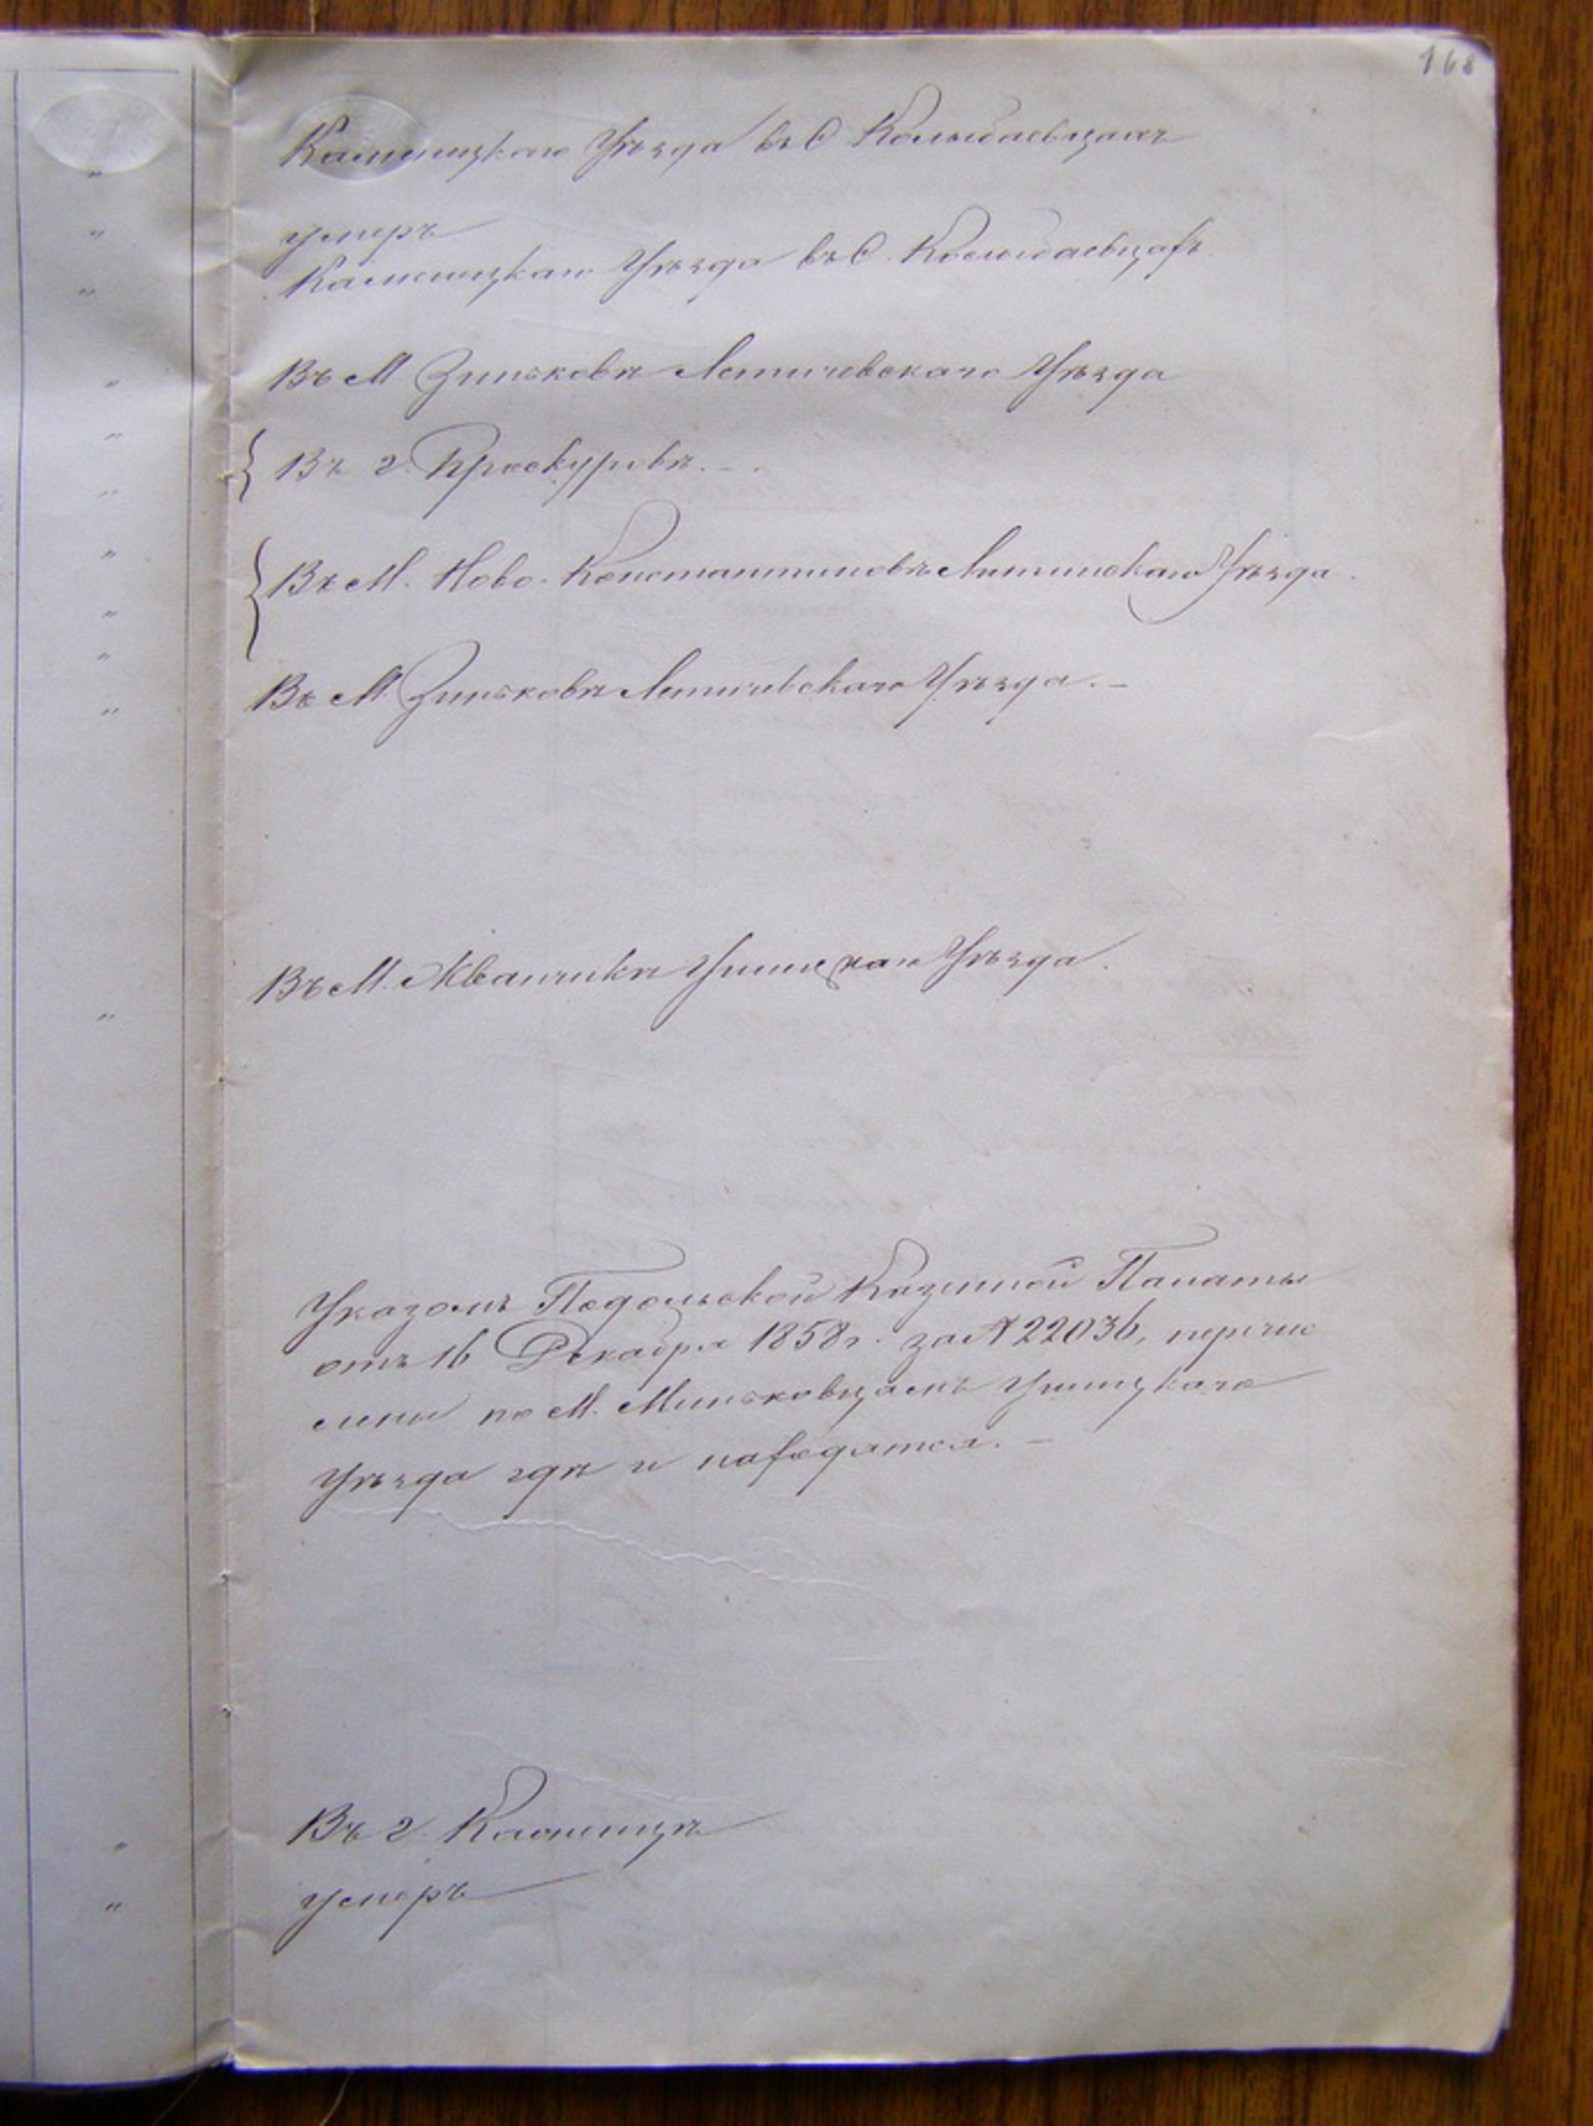 168
Каменецкаго Уѣзда въ С Колыбаевцахъ
умеръ
Каменецкаго Уѣзда въ С. Колыбаевцахъ.
Въ М Зиньковѣ Летичевскаго Уѣзда
Въ г. Проскуровѣ. -.
Въ М. Ново-Константиновѣ Литинскаго Уѣзда.
Въ М. Зиньковѣ Летичевскаго Уѣзда. -
Въ М. Жванчикѣ Ушицкаго Уѣзда.
Указомъ Подольской Казенной Палаты
отъ 16 Декабря 1858 г. за № 22036, перечис
лены по М. Миньковцамъ Ушицкаго
Уѣзда гдѣ и находятся. -
Въ г. Каменцѣ
умеръ